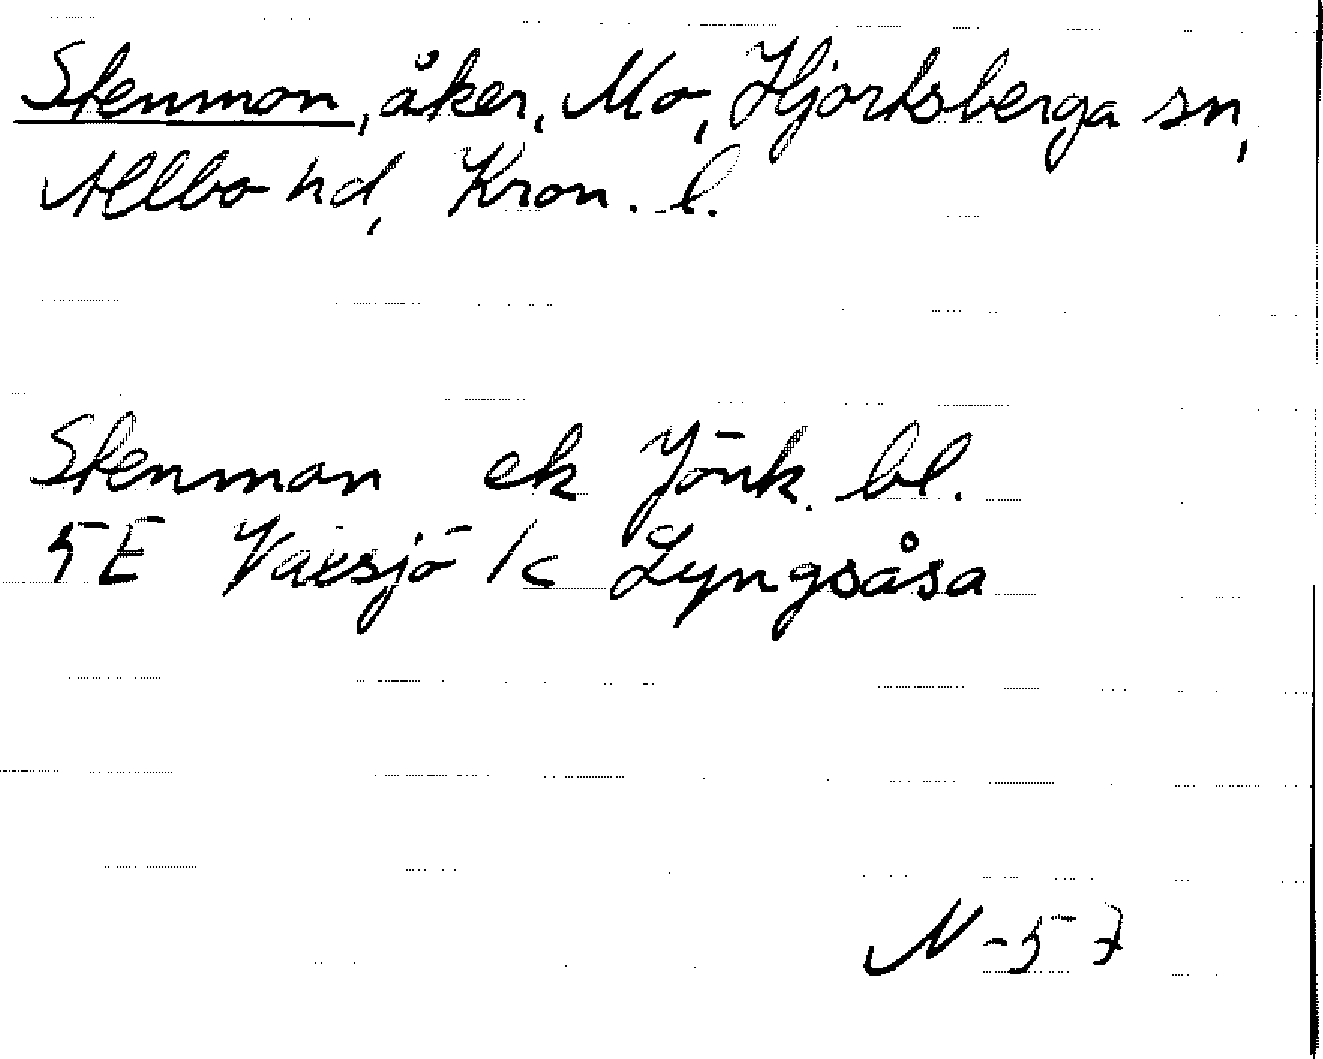 Stenmon, åker, Mo, Hjortsberga sn,
Allbo hd, Kron. l.
Stenman ek Jönk. bl.
5E Växsjö 1c Lyngsåsa
N-57